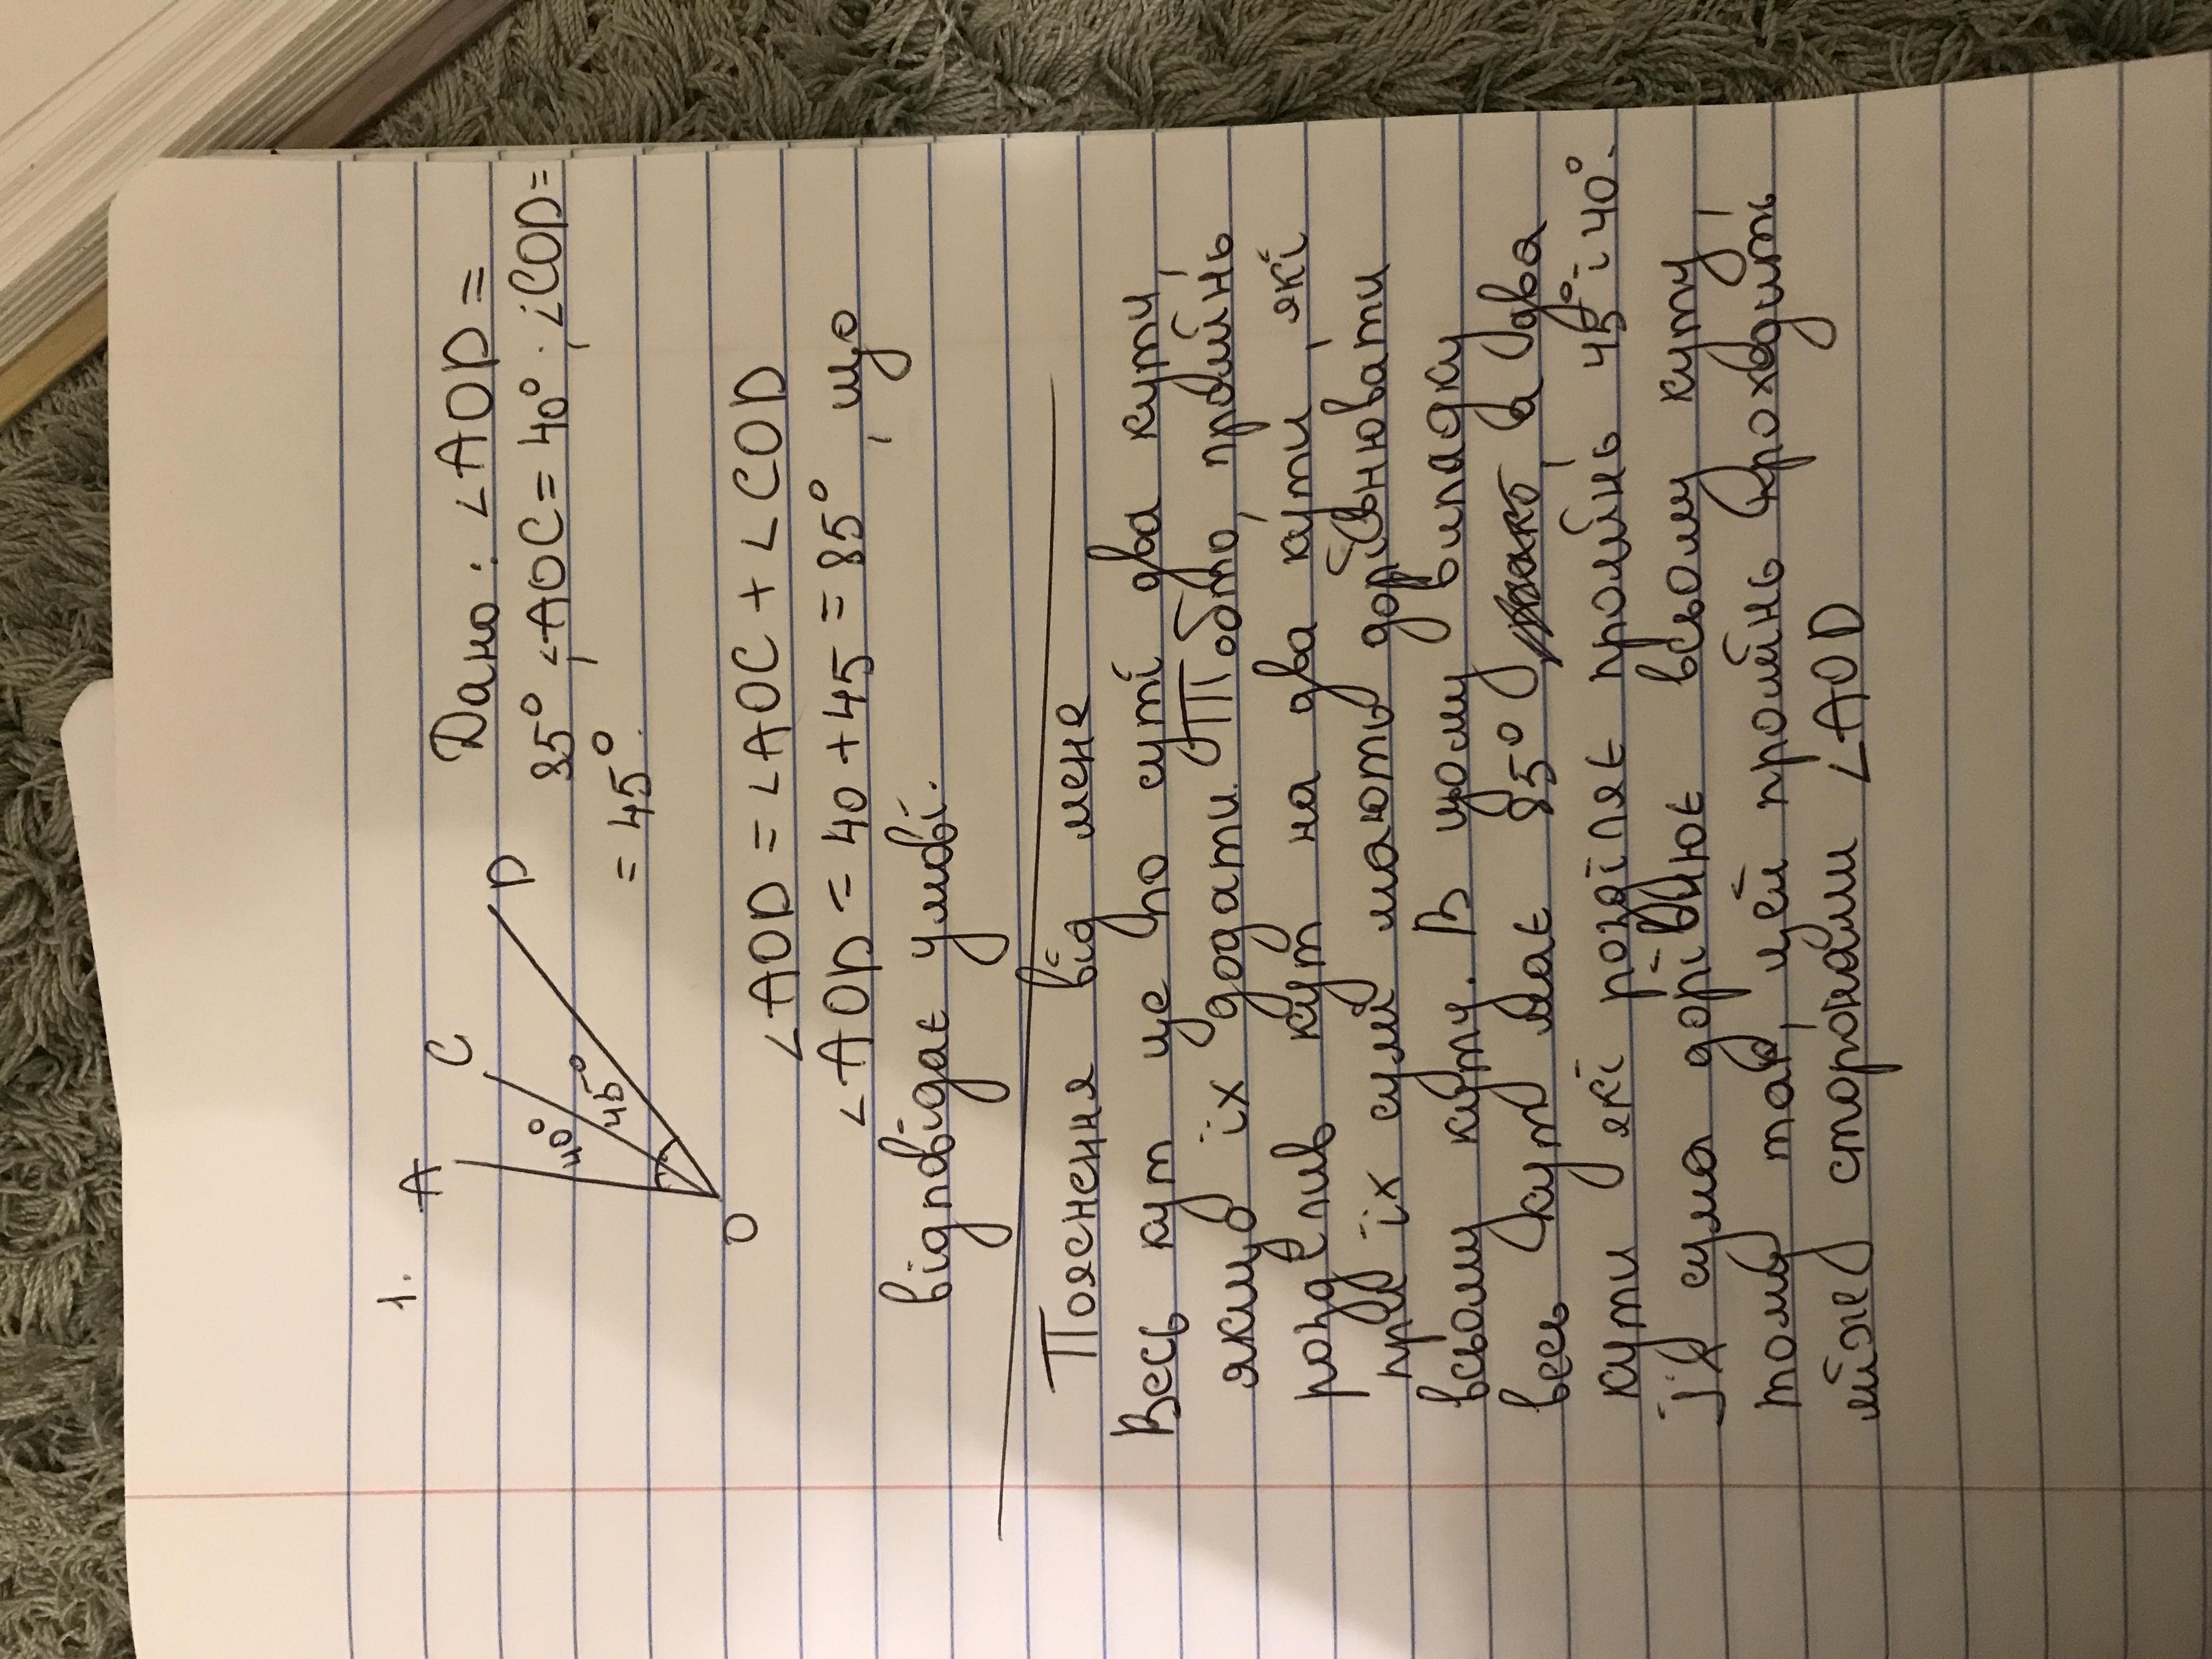 1.
A
C
D
O
40°
45°
Дано: ∠AOD =
85°, ∠AOC = 40°, ∠COD =
= 45°.
∠AOD = ∠AOC + ∠COD
∠AOD = 40 + 45 = 85°, що
відповідає умові.
Пояснення від мене
Весь кут це по суті два кути,
якщо їх додати. Тобто, промінь
розділив кут на два кути, які
при їх сумі мають дорівнювати
всьому куту. В цьому випадку
весь кут має 85°, а два
кути які розділяє промінь 45° і 40°.
Їх сума дорівнює всьому куту,
тому так, цей промінь проходить
між сторонами ∠AOD